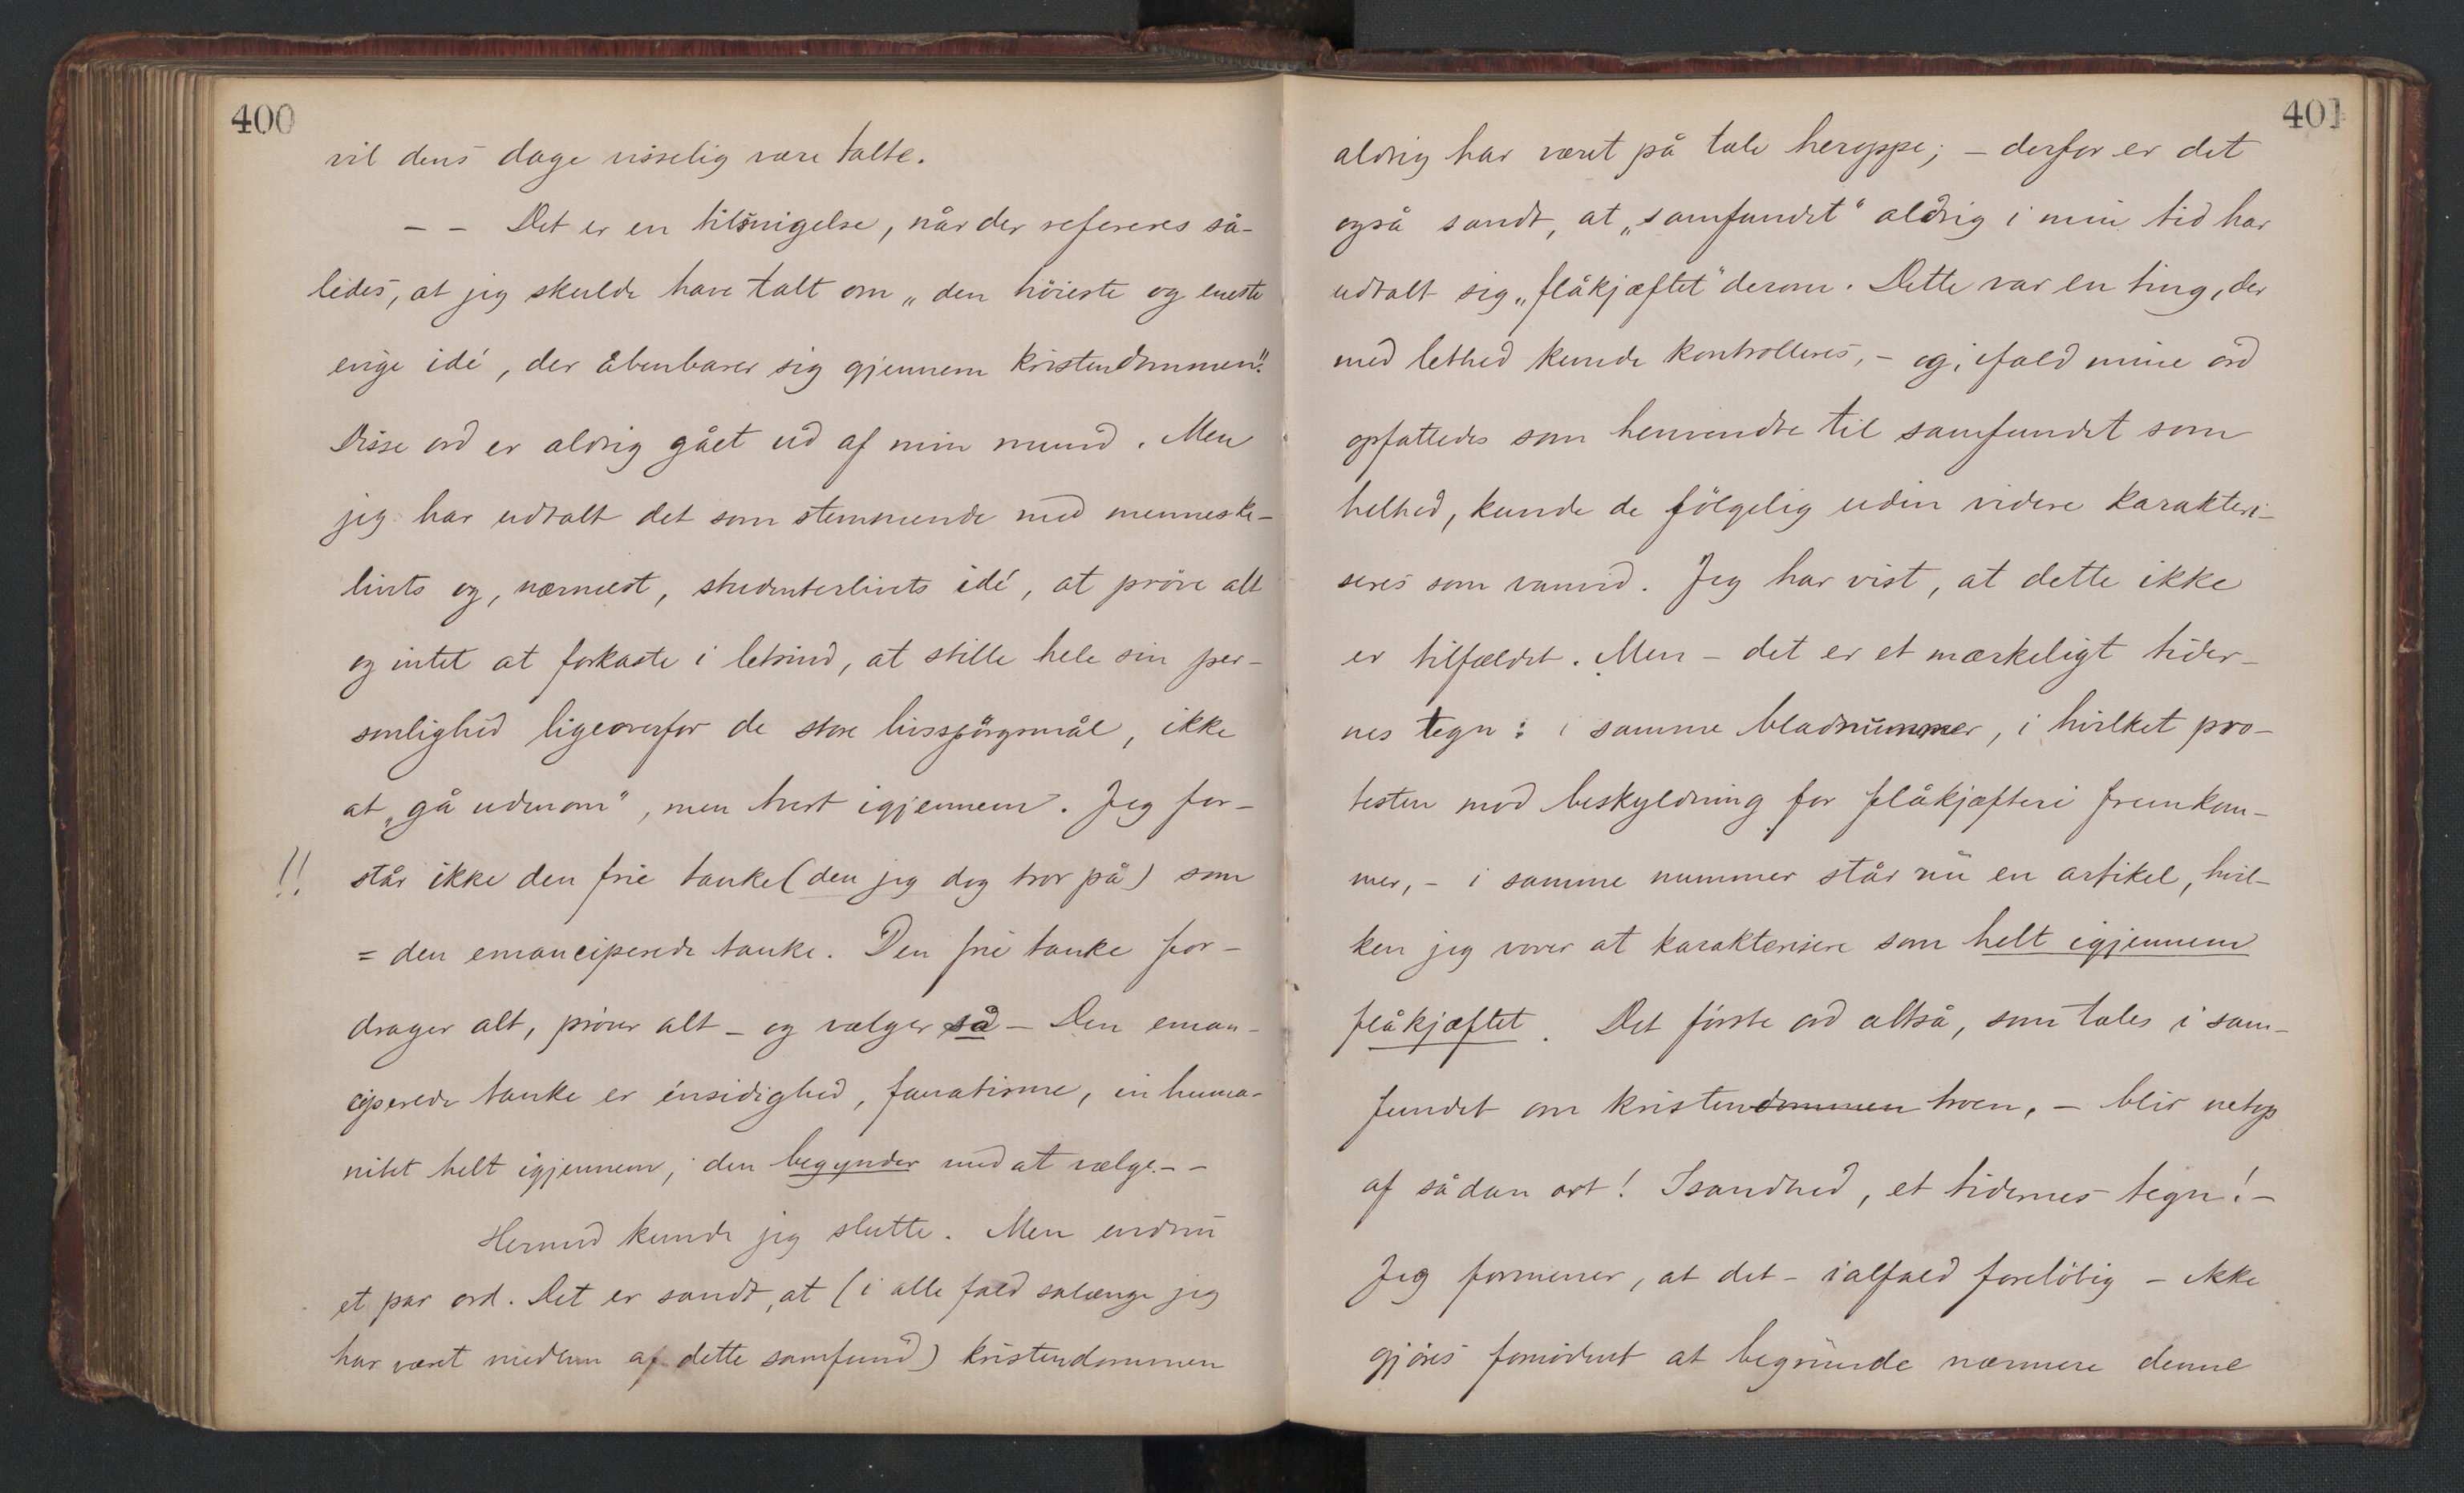 400
vil dens dage visselig være talte.
— — Det er en tilsnigelse, når der refereres så-
ledes, at jeg skulde have talt om „den höieste og eneste
evige idé, der åbenbarer sig gjennem kristendommen".
Disse ord er aldrig gået ud af min mund. Men
jeg har udtalt det som stemmende med menneske-
livets og, nærmest, studenterlivets idé, at pröve alt
og intet at forkaste i letsind, at stille hele sin per-
sonlighed ligeoverfor de store livsspörgsmål, ikke
at „gå udenom", men tvert igjennem. Jeg for-
!! står ikke den frie tanke (den jeg dog tror på) som
= den emanciperede tanke. Den frie tanke for-
drager alt, pröver alt – og vælger så – Den eman-
ciperede tanke er énsidighed, fanatisme, inhuma-
nitet helt igjennem; den begynder med at vælge. – –
Hermed kunde jeg slutte. Men endnu
et par ord. Det er sandt, at (i alle fald sålænge jeg
har været medlem af dette samfund) kristendommen
401
aldrig har været på tale heroppe; – derfor er det
også sandt, at „samfundet" aldrig i min tid har
udtalt sig „flåkjæftet" derom. Dette var en ting, der
med lethed kunde kontrolleres, – og, ifald mine ord
opfattedes som henvendte til samfundet som
helhed, kunde de fölgelig uden videre karakteri-
seres som vanvid. Jeg har vist, at dette ikke
er tilfældet. Men – det er et mærkeligt tider-
nes tegn: i samme bladnummer, i hvilket pro-
testen mod beskyldning for flåkjæfteri fremkom-
mer, – i samme nummer står nu en artikel, hvil-
ken jeg vover at karakterisere som helt igjennem
flåkjæftet. Det förste ord altså, som tales i sam-
fundet om kristendommen troen, – blir netop
af sådan art! Isandhed, et tidernes tegn! –
Jeg formener, at det – ialfald forelöbig – ikke
gjöres fornödent at begrunde nærmere denne